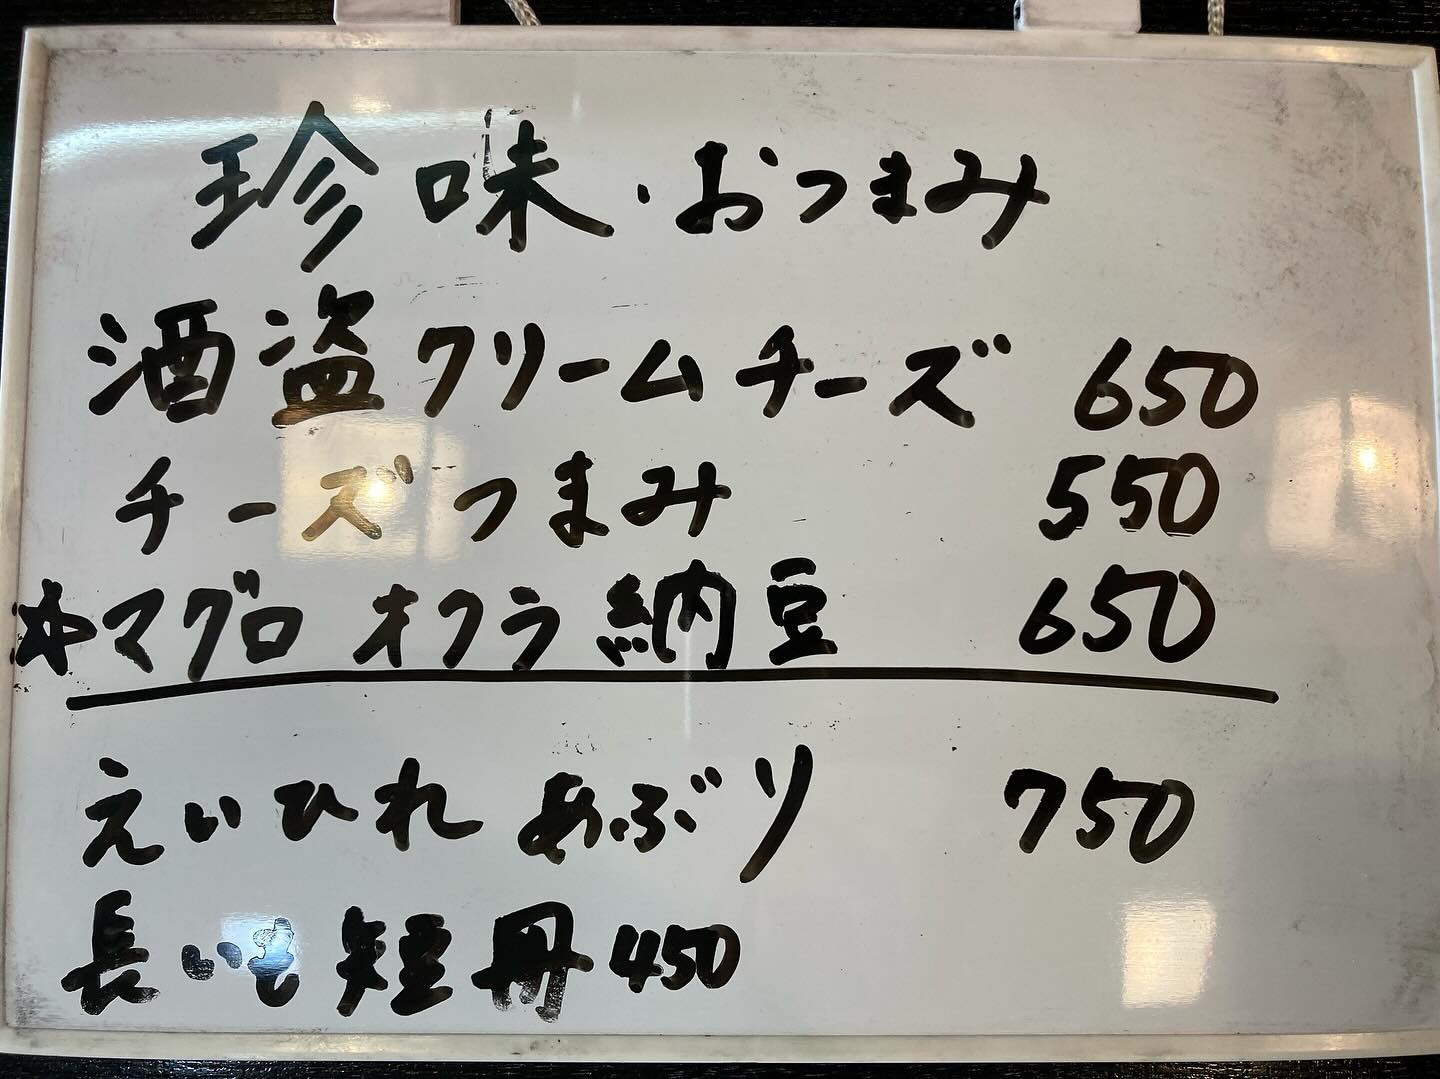 珍味・おつまみ
酒盗クリームチーズ 650
チーズつまみ 550
本マグロ オクラ納豆 650
えいひれ あぶり 750
長いも短冊 450